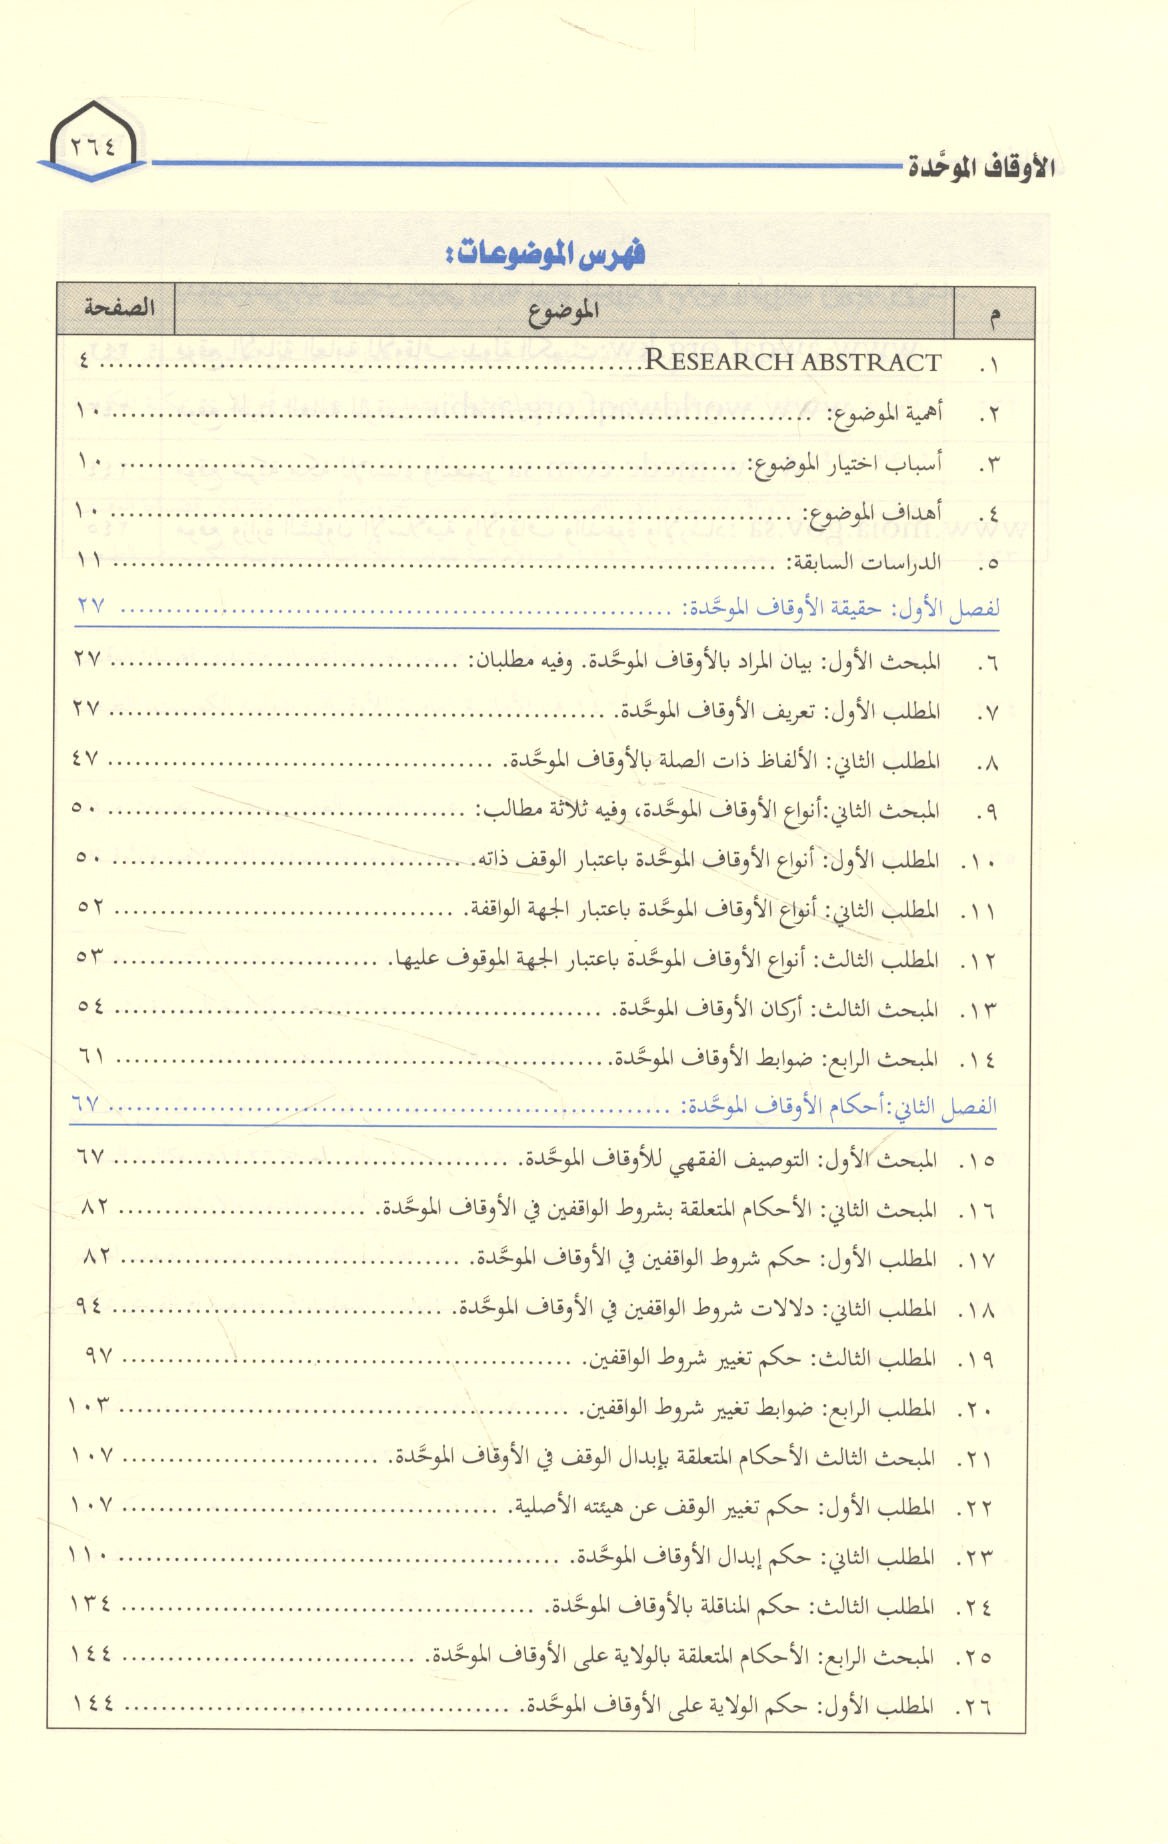 الأوقاف الموحَّدة ٢٦٤
فهرس الموضوعات:
م الموضوع الصفحة
١. RESEARCH ABSTRACT ٤
٢. أهمية الموضوع: ١٠
٣. أسباب اختيار الموضوع: ١٠
٤. أهداف الموضوع: ١٠
٥. الدراسات السابقة: ١١
لفصل الأول: حقيقة الأوقاف الموحَّدة: ٢٧
٦. المبحث الأول: بيان المراد بالأوقاف الموحَّدة. وفيه مطلبان: ٢٧
٧. المطلب الأول: تعريف الأوقاف الموحَّدة. ٢٧
٨. المطلب الثاني: الألفاظ ذات الصلة بالأوقاف الموحَّدة. ٤٧
٩. المبحث الثاني:أنواع الأوقاف الموحَّدة، وفيه ثلاثة مطالب: ٥٠
١٠. المطلب الأول: أنواع الأوقاف الموحَّدة باعتبار الوقف ذاته. ٥٠
١١. المطلب الثاني: أنواع الأوقاف الموحَّدة باعتبار الجهة الواقفة. ٥٢
١٢. المطلب الثالث: أنواع الأوقاف الموحَّدة باعتبار الجهة الموقوف عليها. ٥٣
١٣. المبحث الثالث: أركان الأوقاف الموحَّدة. ٥٤
١٤. المبحث الرابع: ضوابط الأوقاف الموحَّدة. ٦١
الفصل الثاني:أحكام الأوقاف الموحَّدة: ٦٧
١٥. المبحث الأول: التوصيف الفقهي للأوقاف الموحَّدة. ٦٧
١٦. المبحث الثاني: الأحكام المتعلقة بشروط الواقفين في الأوقاف الموحَّدة. ٨٢
١٧. المطلب الأول: حكم شروط الواقفين في الأوقاف الموحَّدة. ٨٢
١٨. المطلب الثاني: دلالات شروط الواقفين في الأوقاف الموحَّدة. ٩٤
١٩. المطلب الثالث: حكم تغيير شروط الواقفين. ٩٧
٢٠. المطلب الرابع: ضوابط تغيير شروط الواقفين. ١٠٣
٢١. المبحث الثالث الأحكام المتعلقة بإبدال الوقف في الأوقاف الموحَّدة. ١٠٧
٢٢. المطلب الأول: حكم تغيير الوقف عن هيئته الأصلية. ١٠٧
٢٣. المطلب الثاني: حكم إبدال الأوقاف الموحَّدة. ١١٠
٢٤. المطلب الثالث: حكم المناقلة بالأوقاف الموحَّدة. ١٣٤
٢٥. المبحث الرابع: الأحكام المتعلقة بالولاية على الأوقاف الموحَّدة. ١٤٤
٢٦. المطلب الأول: حكم الولاية على الأوقاف الموحَّدة. ١٤٤